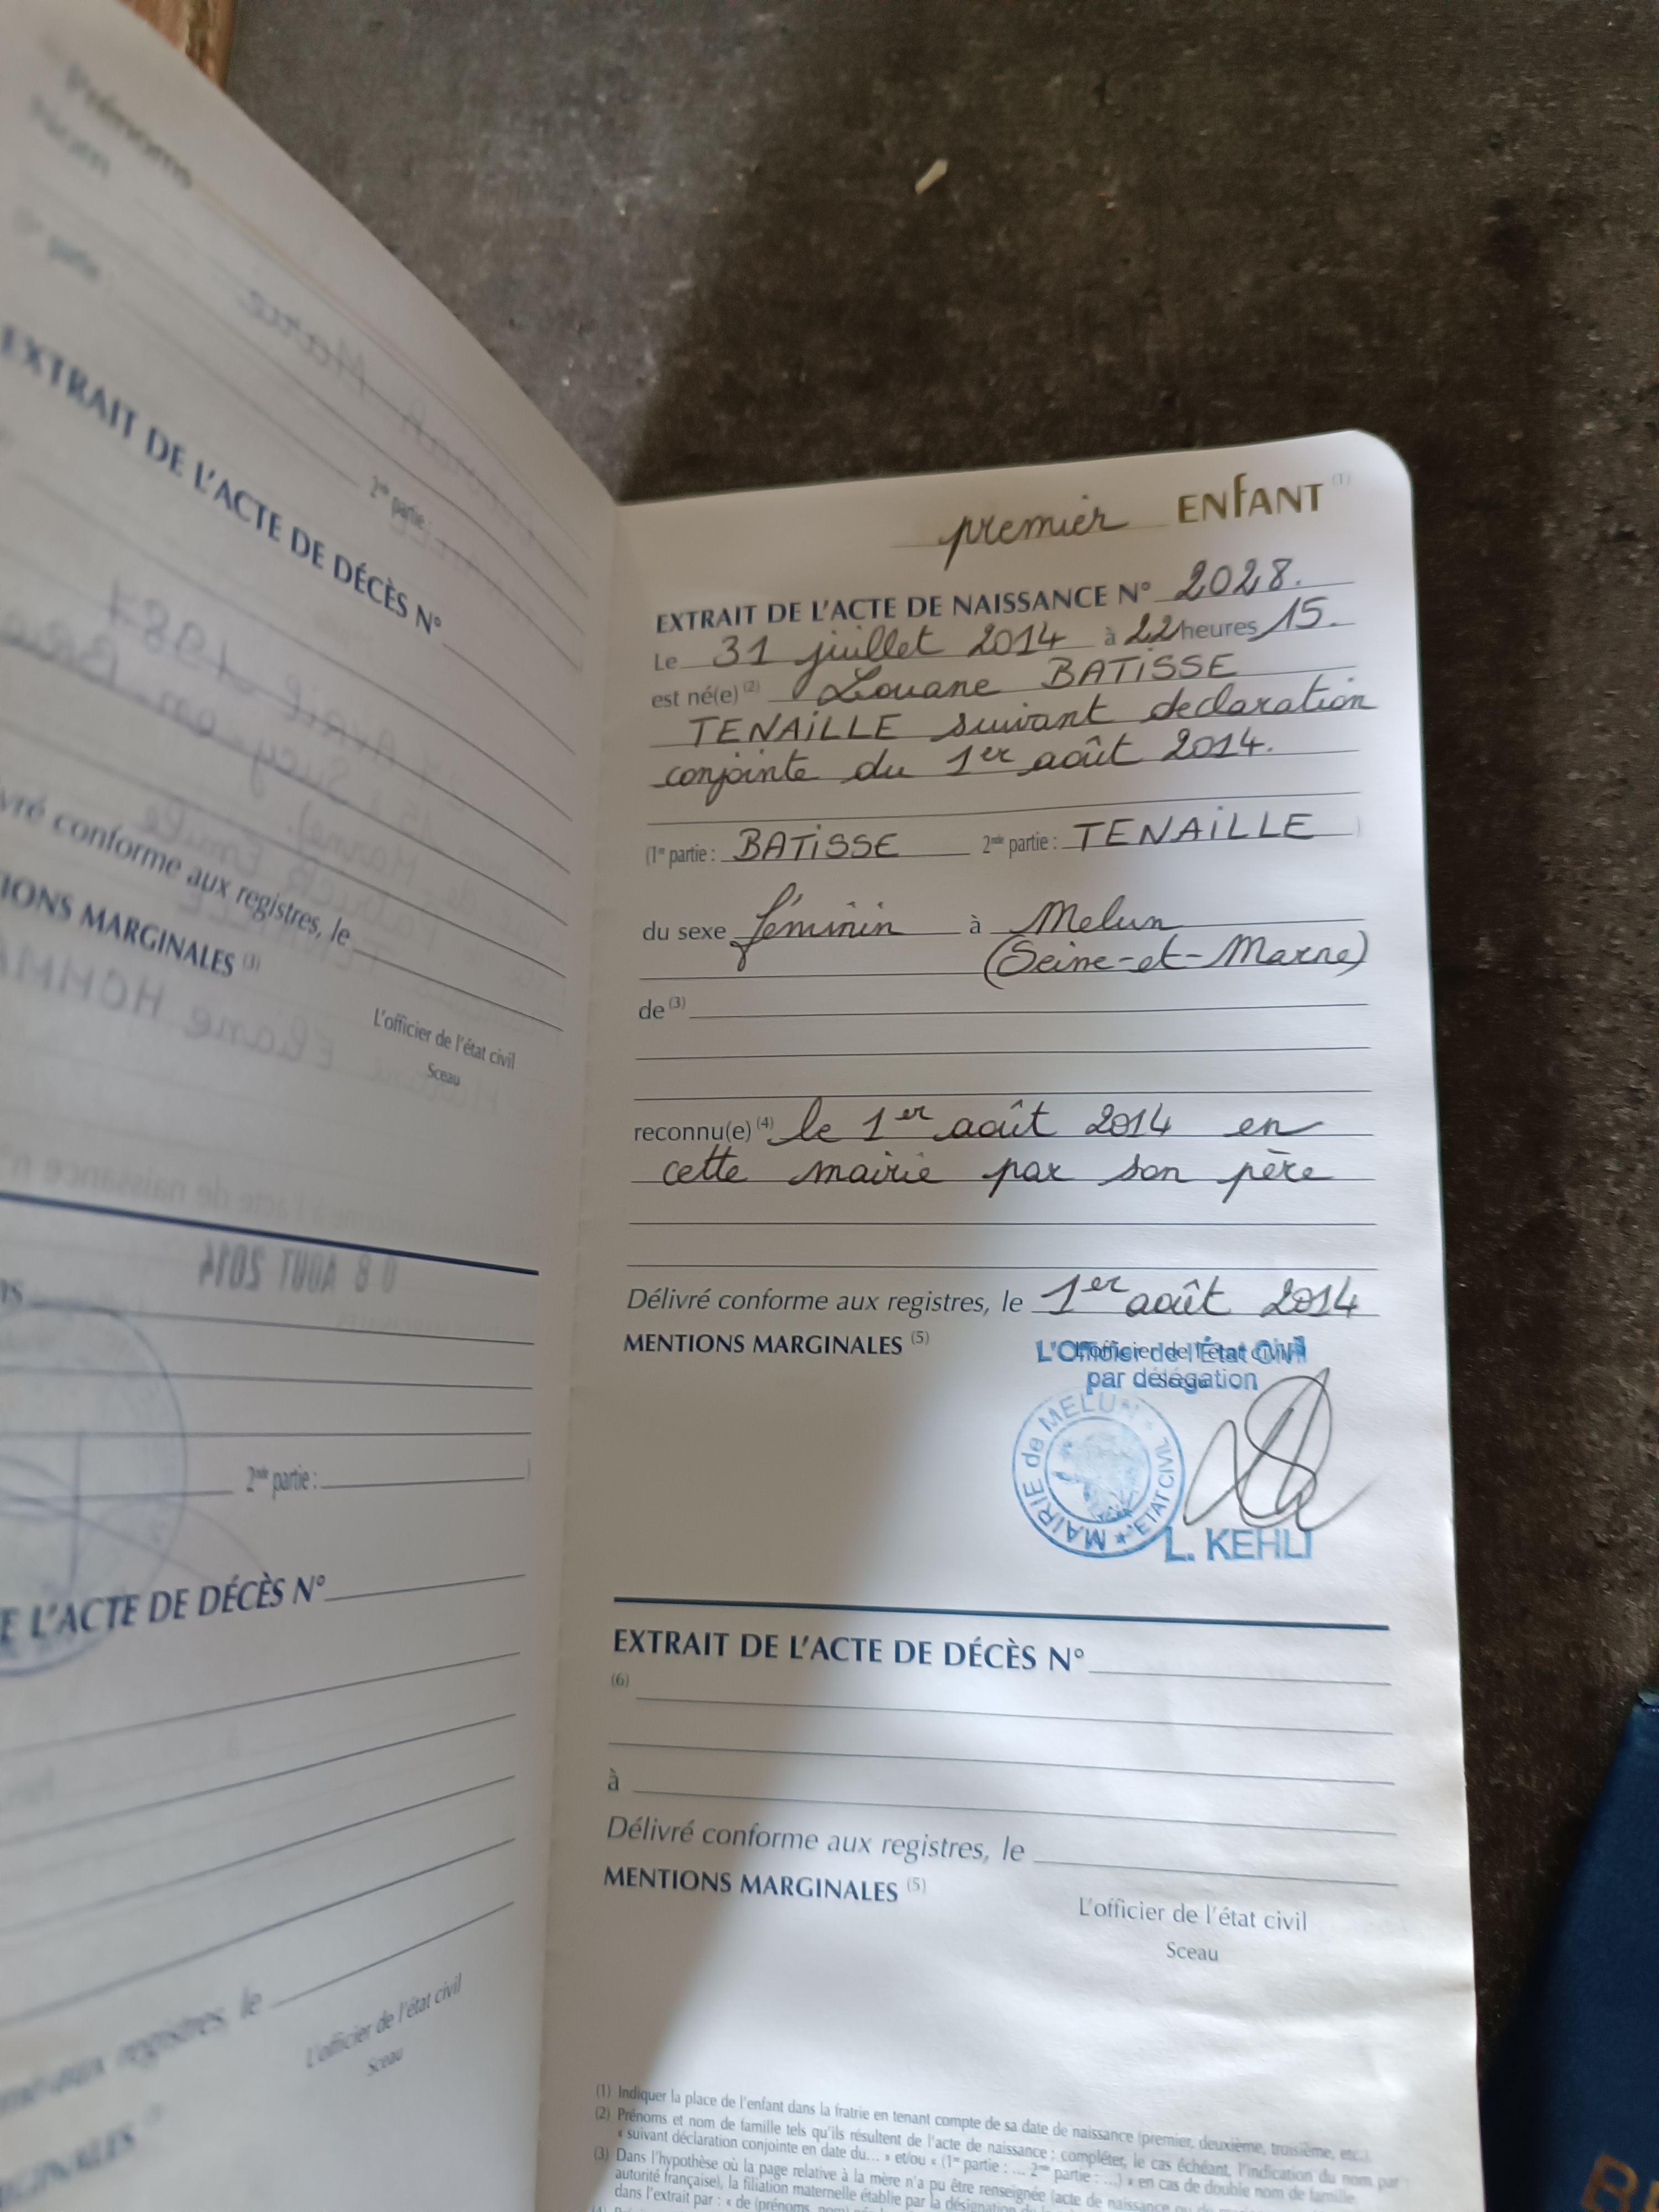 Prénoms
Nom
2nde partie :
EXTRAIT DE L'ACTE DE DÉCÈS N°
vré conforme aux registres, le
IONS MARGINALES (3)
L'officier de l'état civil
Sceau
2nde partie :
E L'ACTE DE DÉCÈS N°
aux registres, le
L'officier de l'état civil
Sceau
premier ENFANT (1)
EXTRAIT DE L'ACTE DE NAISSANCE N° 2028.
Le 31 juillet 2014 à 22 heures 15.
est né(e) (2) Louane BATISSE
TENAILLE suivant declaration
conjointe du 1er août 2014.
(1re partie : BATISSE 2nde partie : TENAILLE )
du sexe féminin à Melun
(Seine-et-Marne)
de (3)
reconnu(e) (4) le 1er août 2014 en
cette mairie par son père
Délivré conforme aux registres, le 1er août 2014
MENTIONS MARGINALES (5)
L'Officier de l'État Civil
par délégation
MAIRIE de MELUN * ETAT CIVIL *
L. KEHLI
EXTRAIT DE L'ACTE DE DÉCÈS N°
(6)
à
Délivré conforme aux registres, le
MENTIONS MARGINALES (5)
L'officier de l'état civil
Sceau
(1) Indiquer la place de l'enfant dans la fratrie en tenant compte de sa date de naissance (premier, deuxième, troisième, etc.).
(2) Prénoms et nom de famille tels qu'ils résultent de l'acte de naissance ; compléter, le cas échéant, l'indication du nom par :
« suivant déclaration conjointe en date du... » et/ou « (1re partie : ... 2nde partie : ...) » en cas de double nom de famille.
(3) Dans l'hypothèse où la page relative à la mère n'a pu être renseignée (acte de naissance
autorité française), la filiation maternelle établie par la désignation
dans l'extrait par : « de (prénoms, nom)